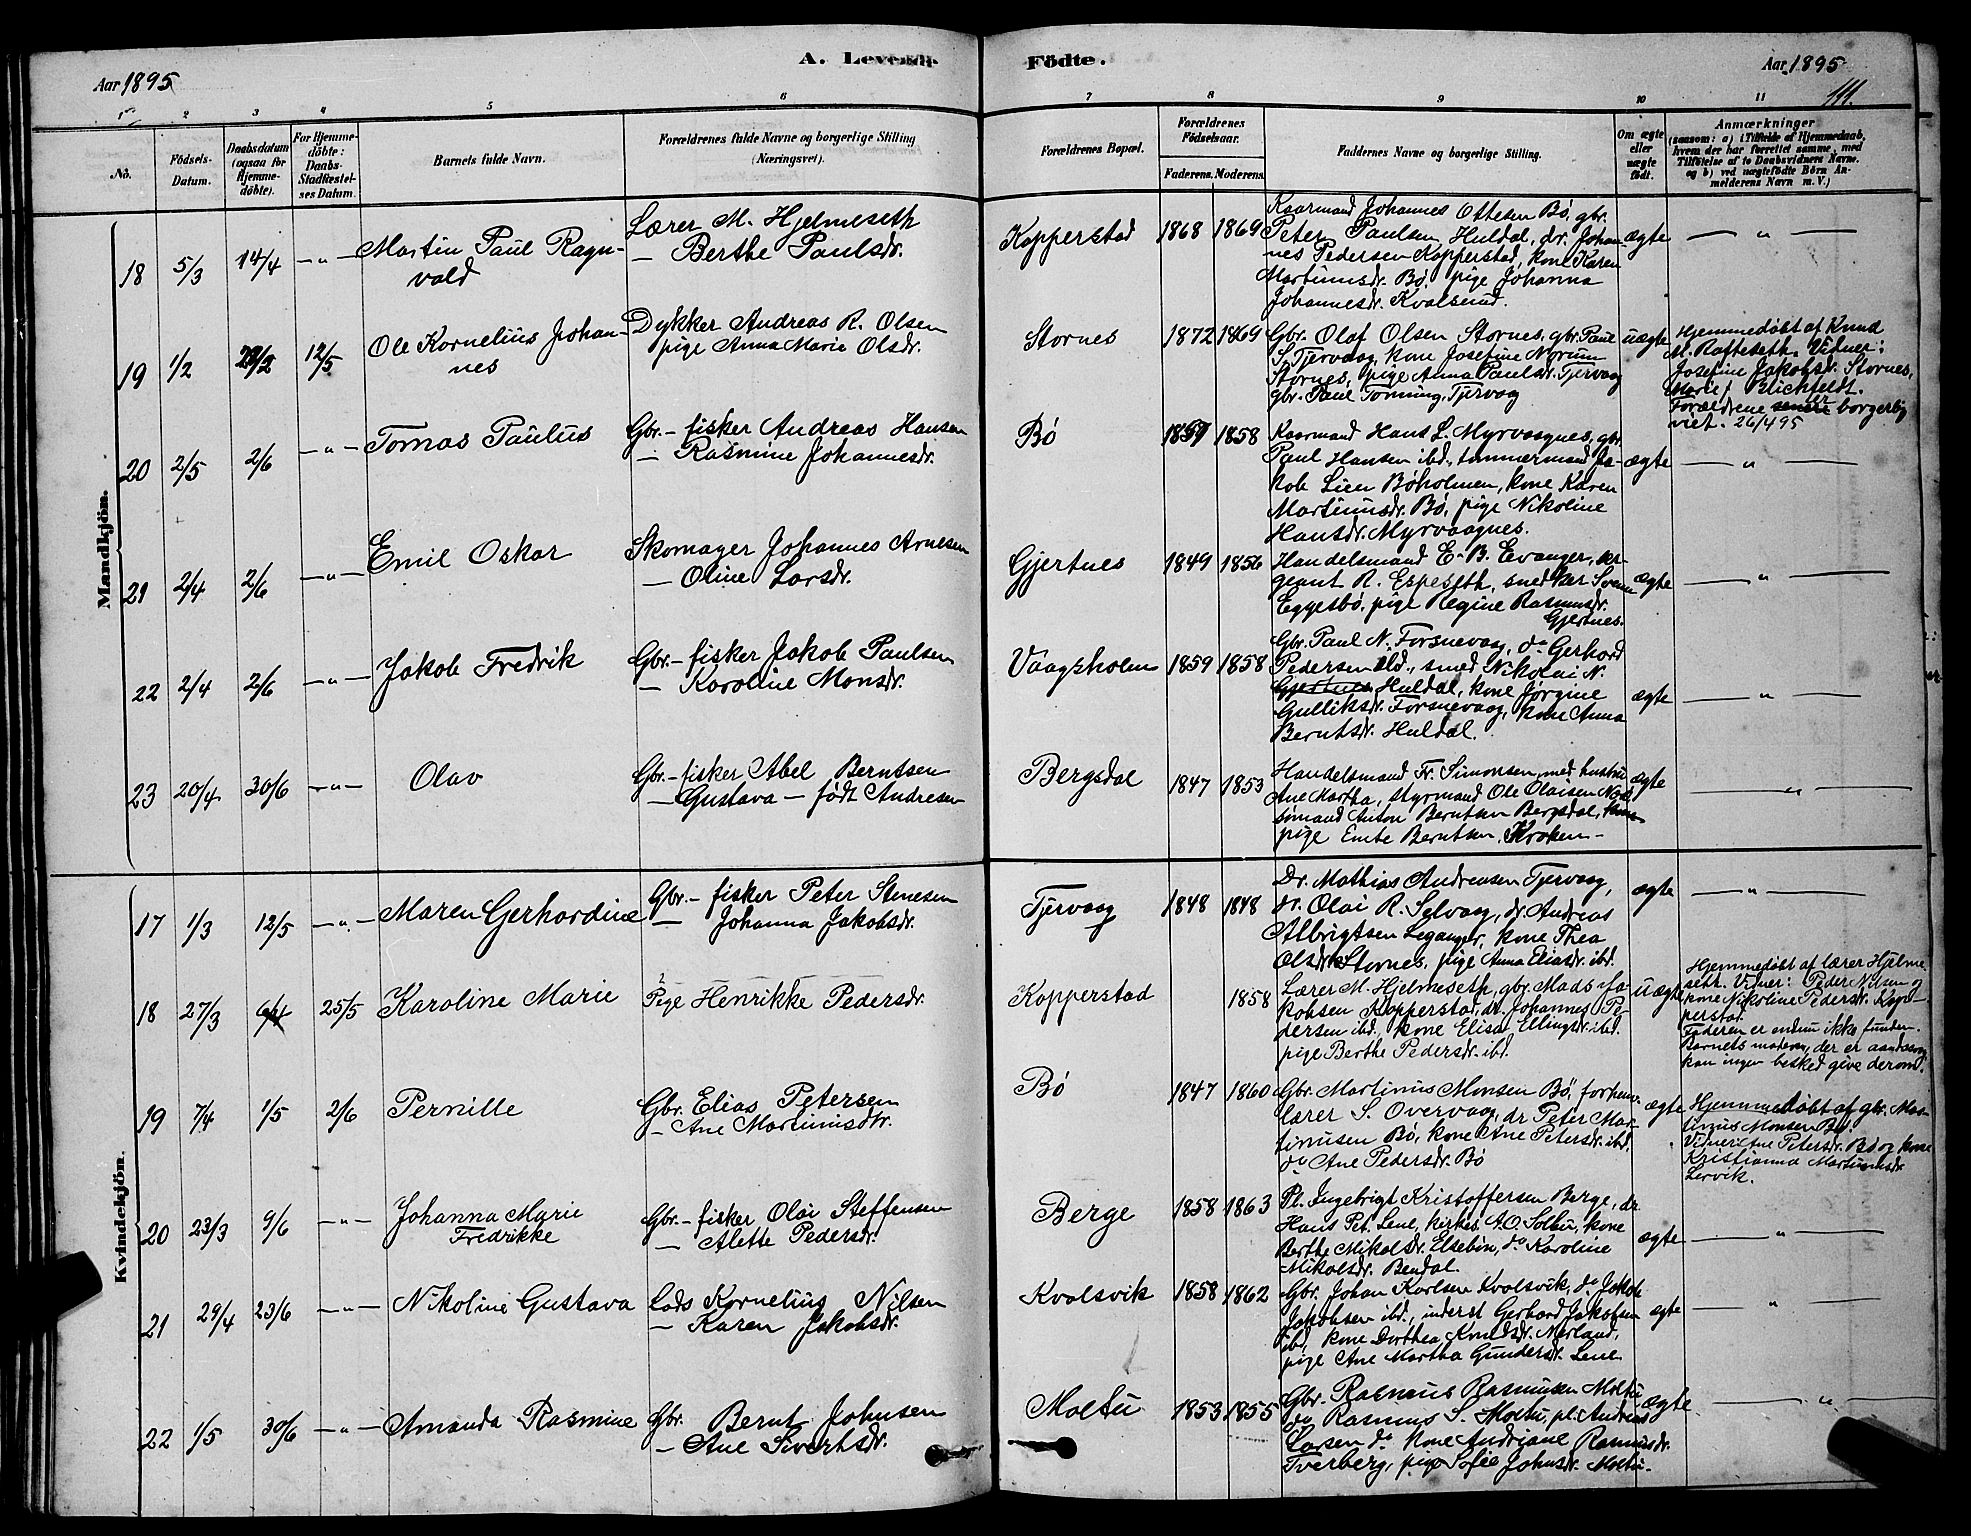 A. Levende
Födte.
Aar 1895
Aar 1895
111.
1
2
3
4
5
6
7
8
9
10
11
No.
Födsels-
Datum.
Daabsdatum
(ogsaa for
Hjemme-
döbte).
For Hjemme-
döbte:
Daabs-
Stadfæstel-
ses Datum.
Barnets fulde Navn.
Forældrenes fulde Navne og borgerlige Stilling
(Næringsvei).
Forældrenes Bopæl.
Forældrenes
Födselsaar.
Faderens.
Moderens.
Faddernes Navne og borgerlige Stilling.
Om ægte
eller
uægte
födt.
Anmærkninger
(saasom: a) i Tilfælde af Hjemmedaab,
hvem der har forrettet samme, med
Tilföielse af to Daabsvidners Navne.
og b) ved uægtefödte Börn An-
melderens Navn m. V.)
Mandkjön.
18 5/3 14/4 -"- Martin Paul Ragn-
vald
Lærer M. Hjelmeseth
- Berthe Paulsdr.
Kopperstad 1868 1869
Kaarmand Johannes Ottesen Bø, gbr.
Peter Paulsen Huldal, dr. Johan-
nes Pedersen Kopperstad, kone Karen
Martinusdr. Bø, pige Johanna
Johannesdr. Kvalsund.
ægte - " -
19 1/2 12/5 Ole Kornelius Johan-
nes
Dykker Andreas R. Olsen
pige Anna Marie Olsdr.
Stornes 1872 1869
Gbr. Olaf Olsen Stornes, gbr. Paul
S. Tjervaag, kone Josefine Norum
Stornes, pige Anna Paulsdr. Tjervaag
gbr. Paul Torning, Tjervaag
uægte
Hjemmedøbt af Knud
M. Rafteseth. Vidner:
Josefine Jakobsdr. Stornes,
Marie Blichfeldt.
Forældrene er borgerlig
viet. 26/4 95
20 2/5 2/6 -"- Tomas Paulus
Gbr.- fisker Andreas Hansen
- Rasmine Johannesdr.
Bø 1857 1858
Kaarmand Hans L. Myrvaagnes, gbr.
Paul Hansen ibd., tømmermand Ja-
kob Lien Bøholmen, kone Karen
Martinusdr. Bø, pige Nikoline
Hansdr. Myrvaagnes.
ægte - " -
21 2/4 2/6 -"- Emil Oskar
Skomager Johannes Arnesen
- Oline Larsdr.
Gjertnes 1849 1856
Handelsmand E. B. Evanger, ser-
geant R. Espeseth, snedker Svenn
Eggesbø, pige Regine Rasmusdr.
Gjertnes.
ægte - " -
22 2/4 2/6 -"- Jakob Fredrik
Gbr.- fisker Jakob Paulsen
- Karoline Monsdr.
Vaagsholm 1859 1858
Gbr. Paul N. Forsnevaag, do Gerhard
Pedersen ibd., smed Nikolai N.
Gjertnes Huldal, kone Jørgine
Gulliksdr. Forsnevaag, kone Anna
Berntsdr. Huldal.
ægte - " -
23 20/4 30/6 -"- Olav
Gbr.- fisker Abel Berntsen
- Gustava - født Andresen
Bergsdal 1847 1853
Handelsmand Fr. Simonsen med hustru
Ane Martha, styrmand Ole Olaisen
sømand Anton Berntsen Bergsdal,
pige Emte Berntsen, Kroken-
ægte - " -
Kvindekjön.
17 1/3 12/5 -"- Maren Gerhardine
Gbr.- fisker Peter Stenesen
- Johanna Jakobsdr.
Tjervaag 1848 1848
Dr. Mathias Andreasen Tjervaag,
dr. Olai R. Selvaag, dr. Andreas
Albrigtsen Leganger, kone Thea
Olsdr. Stornes, pige Anna Eliasdr. ibd.
ægte - " -
18 27/3 25/5 Karoline Marie
Pige Henrikke Pedersdr.
Kopperstad 1858
Lærer M. Hjelmeseth, gbr. Mads Ja-
kobsen Kopperstad, dr. Johannes Pe-
dersen ibd., kone Elisa Ellingsdr. ibd.
pige Berthe Pedersdr. ibd.
uægte
Hjemmedøbt af lærer Hjelme-
seth. Vidner: Peder Nilsen og
kone Nikoline Pedersdr. Kop-
perstad.
Faderen er endnu ikke funden.
Barnets moder, der er aandssvag
kan ingen besked give derom.
19 7/4 1/5 2/6 Pernille
Gbr. Elias Petersen
- Ane Martinusdr.
Bø 1847 1860
Gbr. Martinus Monsen Bø, forhenv.
lærer S. Overvaag, dr. Peter Mar-
tinusen Bø, kone Ane Petersdr. ibd.
do Ane Pedersdr. Bø
ægte
Hjemmedøbt af gbr. Mar-
tinus Monsen Bø.
Vidner: Ane Petersdr. Bø og kone
Kristianna Martinusdr.
Lervik.
20 23/3 9/6 -"- Johanna Marie
Fredrikke
Gbr.- fisker Olai Steffensen
- Alette Pedersdr.
Berge 1858 1863
Pl. Ingebrigt Kristoffersen Berge, dr.
Hans Pet. Lene, kirkes. A. O. Solbu, kone
Berthe Mikalsdr. Elsebøn, do Karoline
Mikalsdr. Bendal.
ægte - " -
21 29/4 23/6 -"- Nikoline Gustava
Lods Kornelius Nilsen
- Karen Jakobsdr.
Kvalsvik 1858 1862
Gbr. Johan Karlsen Kvalsvik, do Jakob
Jakobsen ibd., inderst Gerhard Jakobsen
ibd, kone Dorthea Knudsdr. Nerland,
pige Ane Martha Gundersdr. Lene
ægte - " -
22 1/5 30/6 -"- Amanda Rasmine
Gbr. Bernt Johnsen
- Ane Sivertsdr.
Moltu 1853 1855
Gbr. Rasmus Rasmussen Moltu
do Rasmus S. Moltu, pl. Andreas
Larsen do kone Andriane Rasmusdr.
Tverberg, pige Sofie Johnsdr. Moltu-
ægte - " -